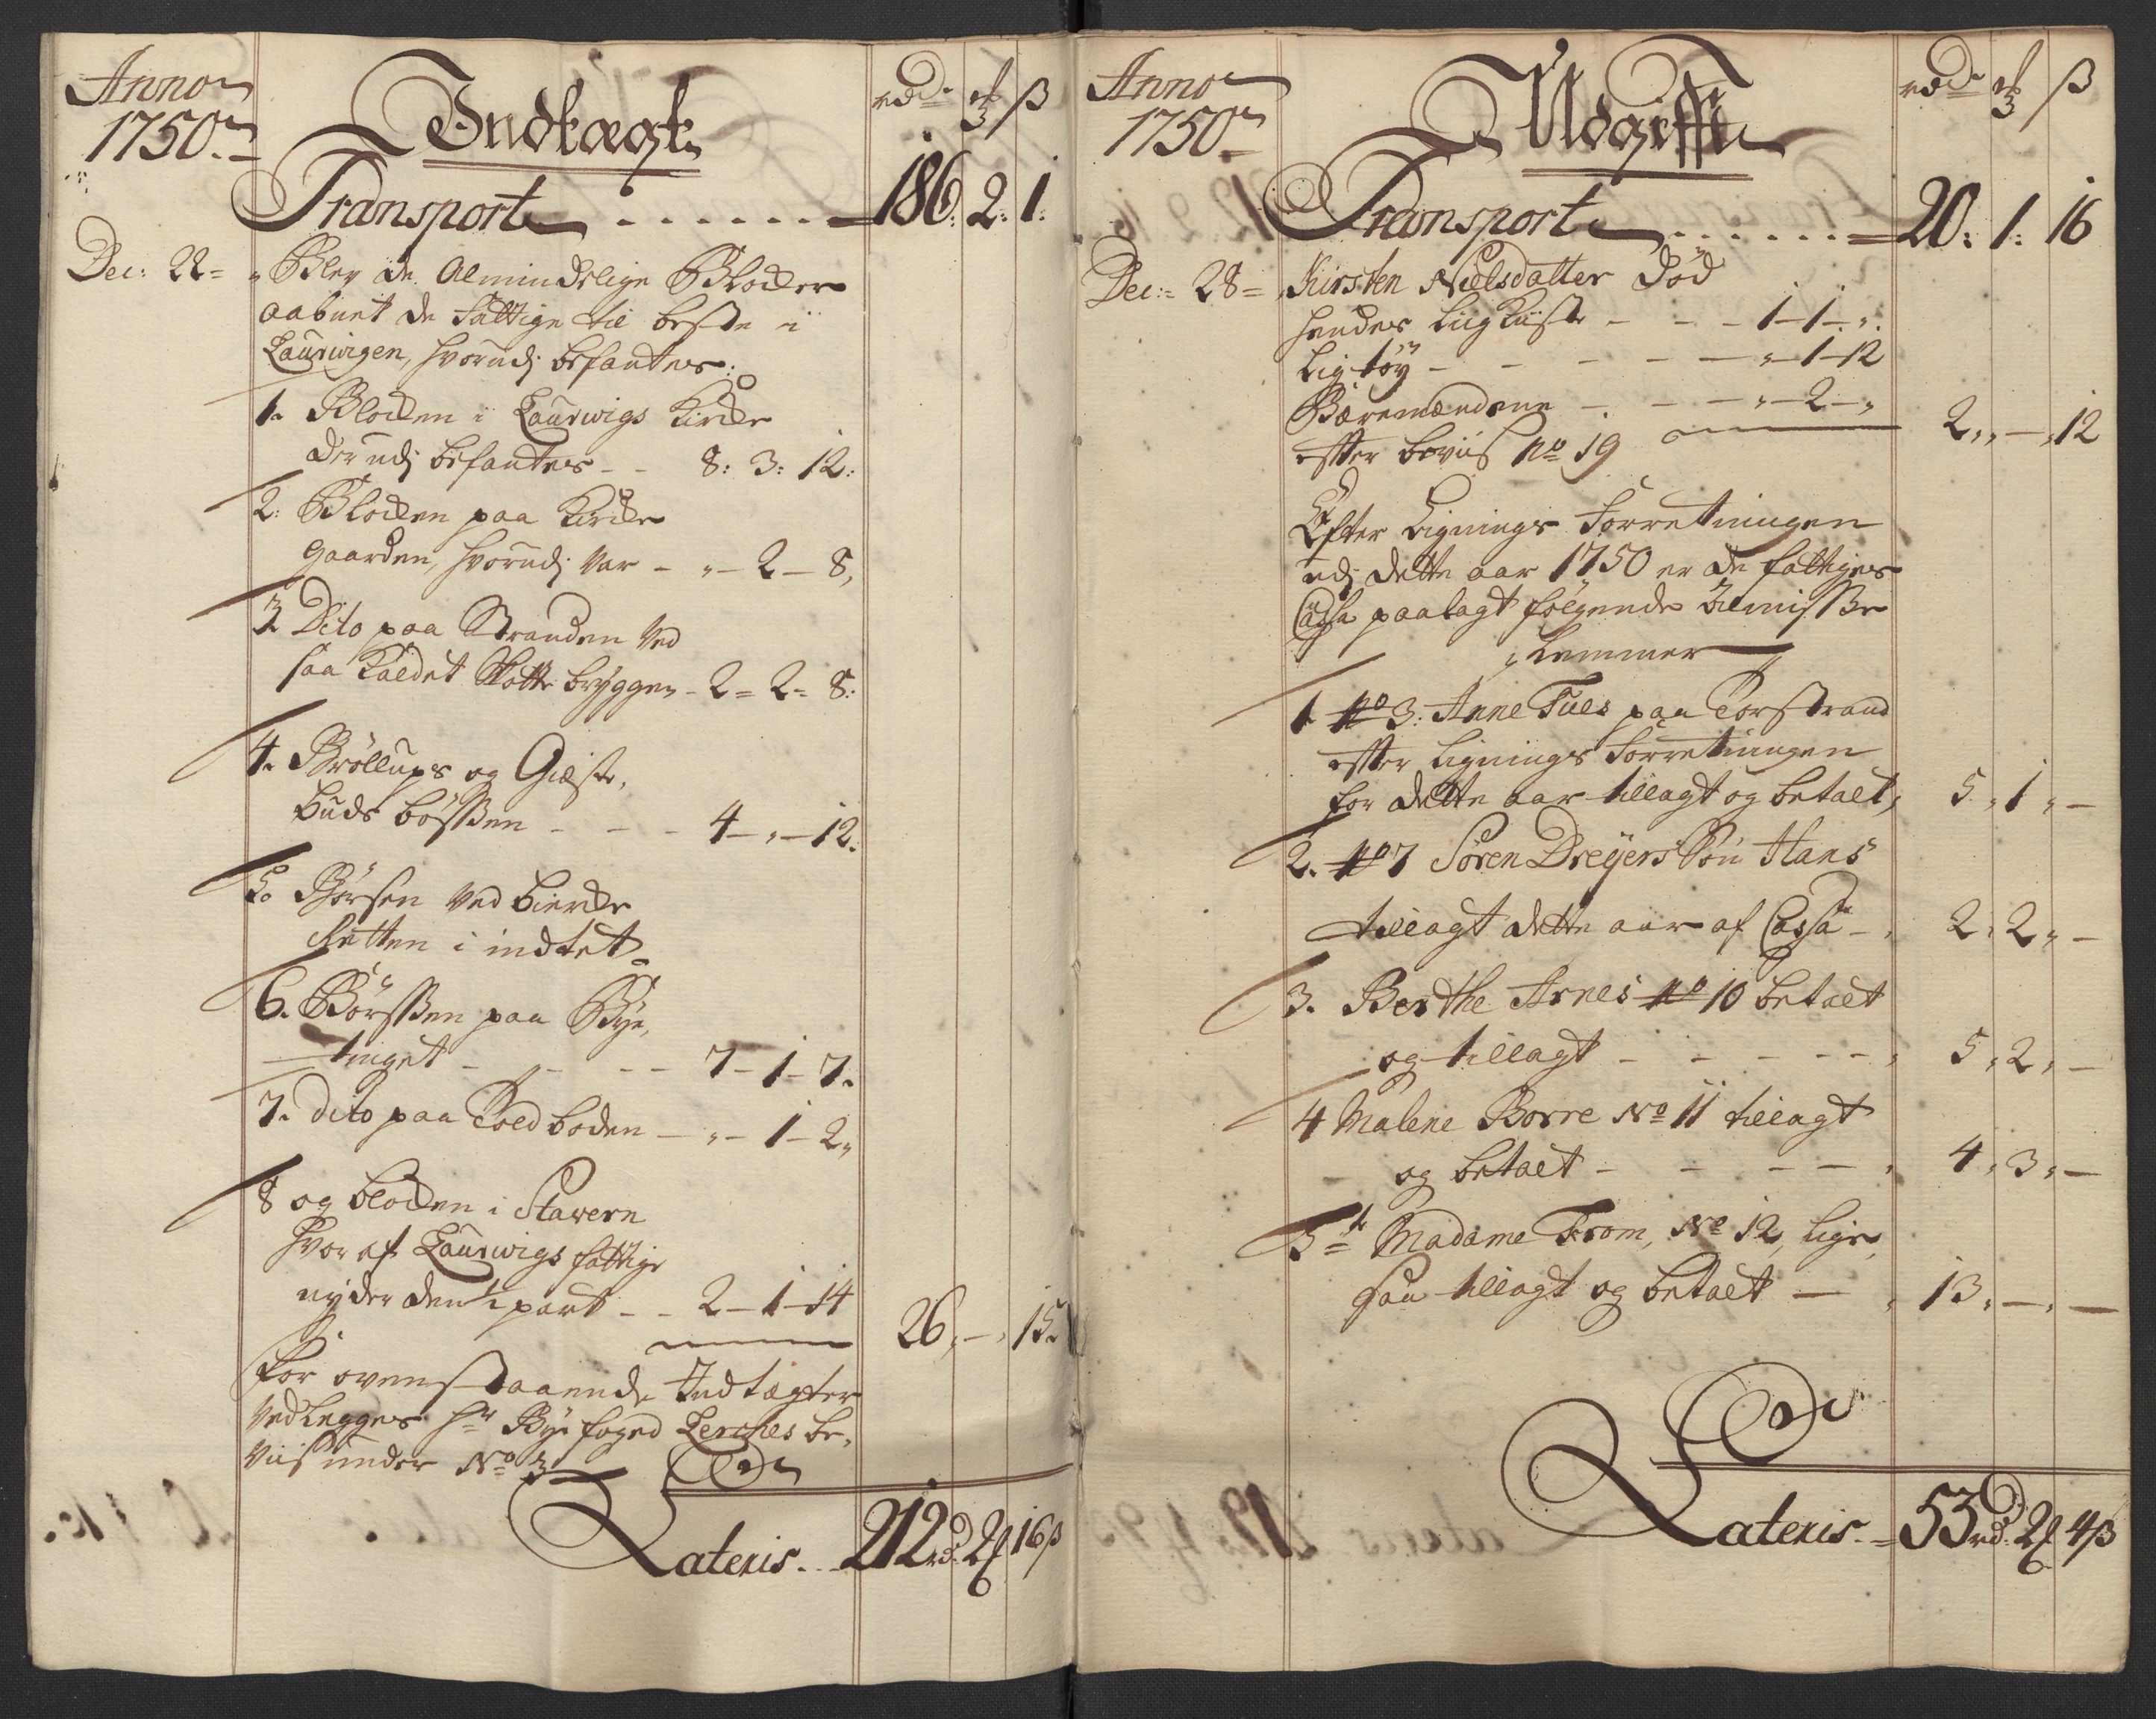 Anno
1750
Indtægt
rd ß
Transport . . . . . . . 186. 2. 1.
Dec: 22 = Blev de Almindelige Blocker
aabnet de Fattige til beste i
Laurvigen, hvorudj befantes:
1. Blocken i Laurwigs Kircke
derudj befantes - - 8: 3: 12:
2: Blocken paa Kircke
gaarden, hvorudj var - " - 2 - 8,
3 Dito paa Stranden ved
saa kaldet Skotte bryggen - 2 = 2 = 8:
4. Bröllups og Giæste,
buds bössen - - - 4 - " - 12.
5. Börsen ved
i indtet
6. Börssen paa Bye,
tinget - - - - - 7 - 1 - 7.
7. dito paa Toldboden - " - 1 - 2 "
8 og blocken i Stavern
hvor af Laurwigs fattige
nyder den ½ part - - 2 - 1 - 14
26, - , 15.
for ovenstaaende Indtægter
vedlegges Hr Byefoged Lerches be,
viis under No 3
Lateris . . . 212 rd. 2 16 ß
Anno
1750
Udgifft
rd ß
Transport . . . . . . = 20. 1. 16
Dec: 28 = Kirsten Nielsdatter död
hendes Liigkiiste - - - 1 - 1 - " .
Ligtöy - - - - - " - 1 - 12
Bæremændene - - - " - 2 - "
efter beviis No 19
2, " - , 12
Efter Lignings Forretningen
udj dette aar 1750 er de fattiges
Cassa paalagt fölgende Almisse
Lemmer
1 No 3: Anne Tues paa Torstrand
effter Lignings Forretningen
for dette aar tillagt og betalt, 5 , 1 , -
2. No 7 Sören Dreyers Sön Hans
tillagt dette aar af Cassa - , 2 , 2 , -
3. Berthe Arnes No 10 betalt
og tillagt - - - - - - , 5 , 2 , -
4 Malene Borre No 11 tillagt
og betalt - - - - , 4 , 3 , -
5te Madame From, No 12, lige,
saa tillagt og betalt - , 13 , - , -
Lateris . = 53 rd. 2 4 ß